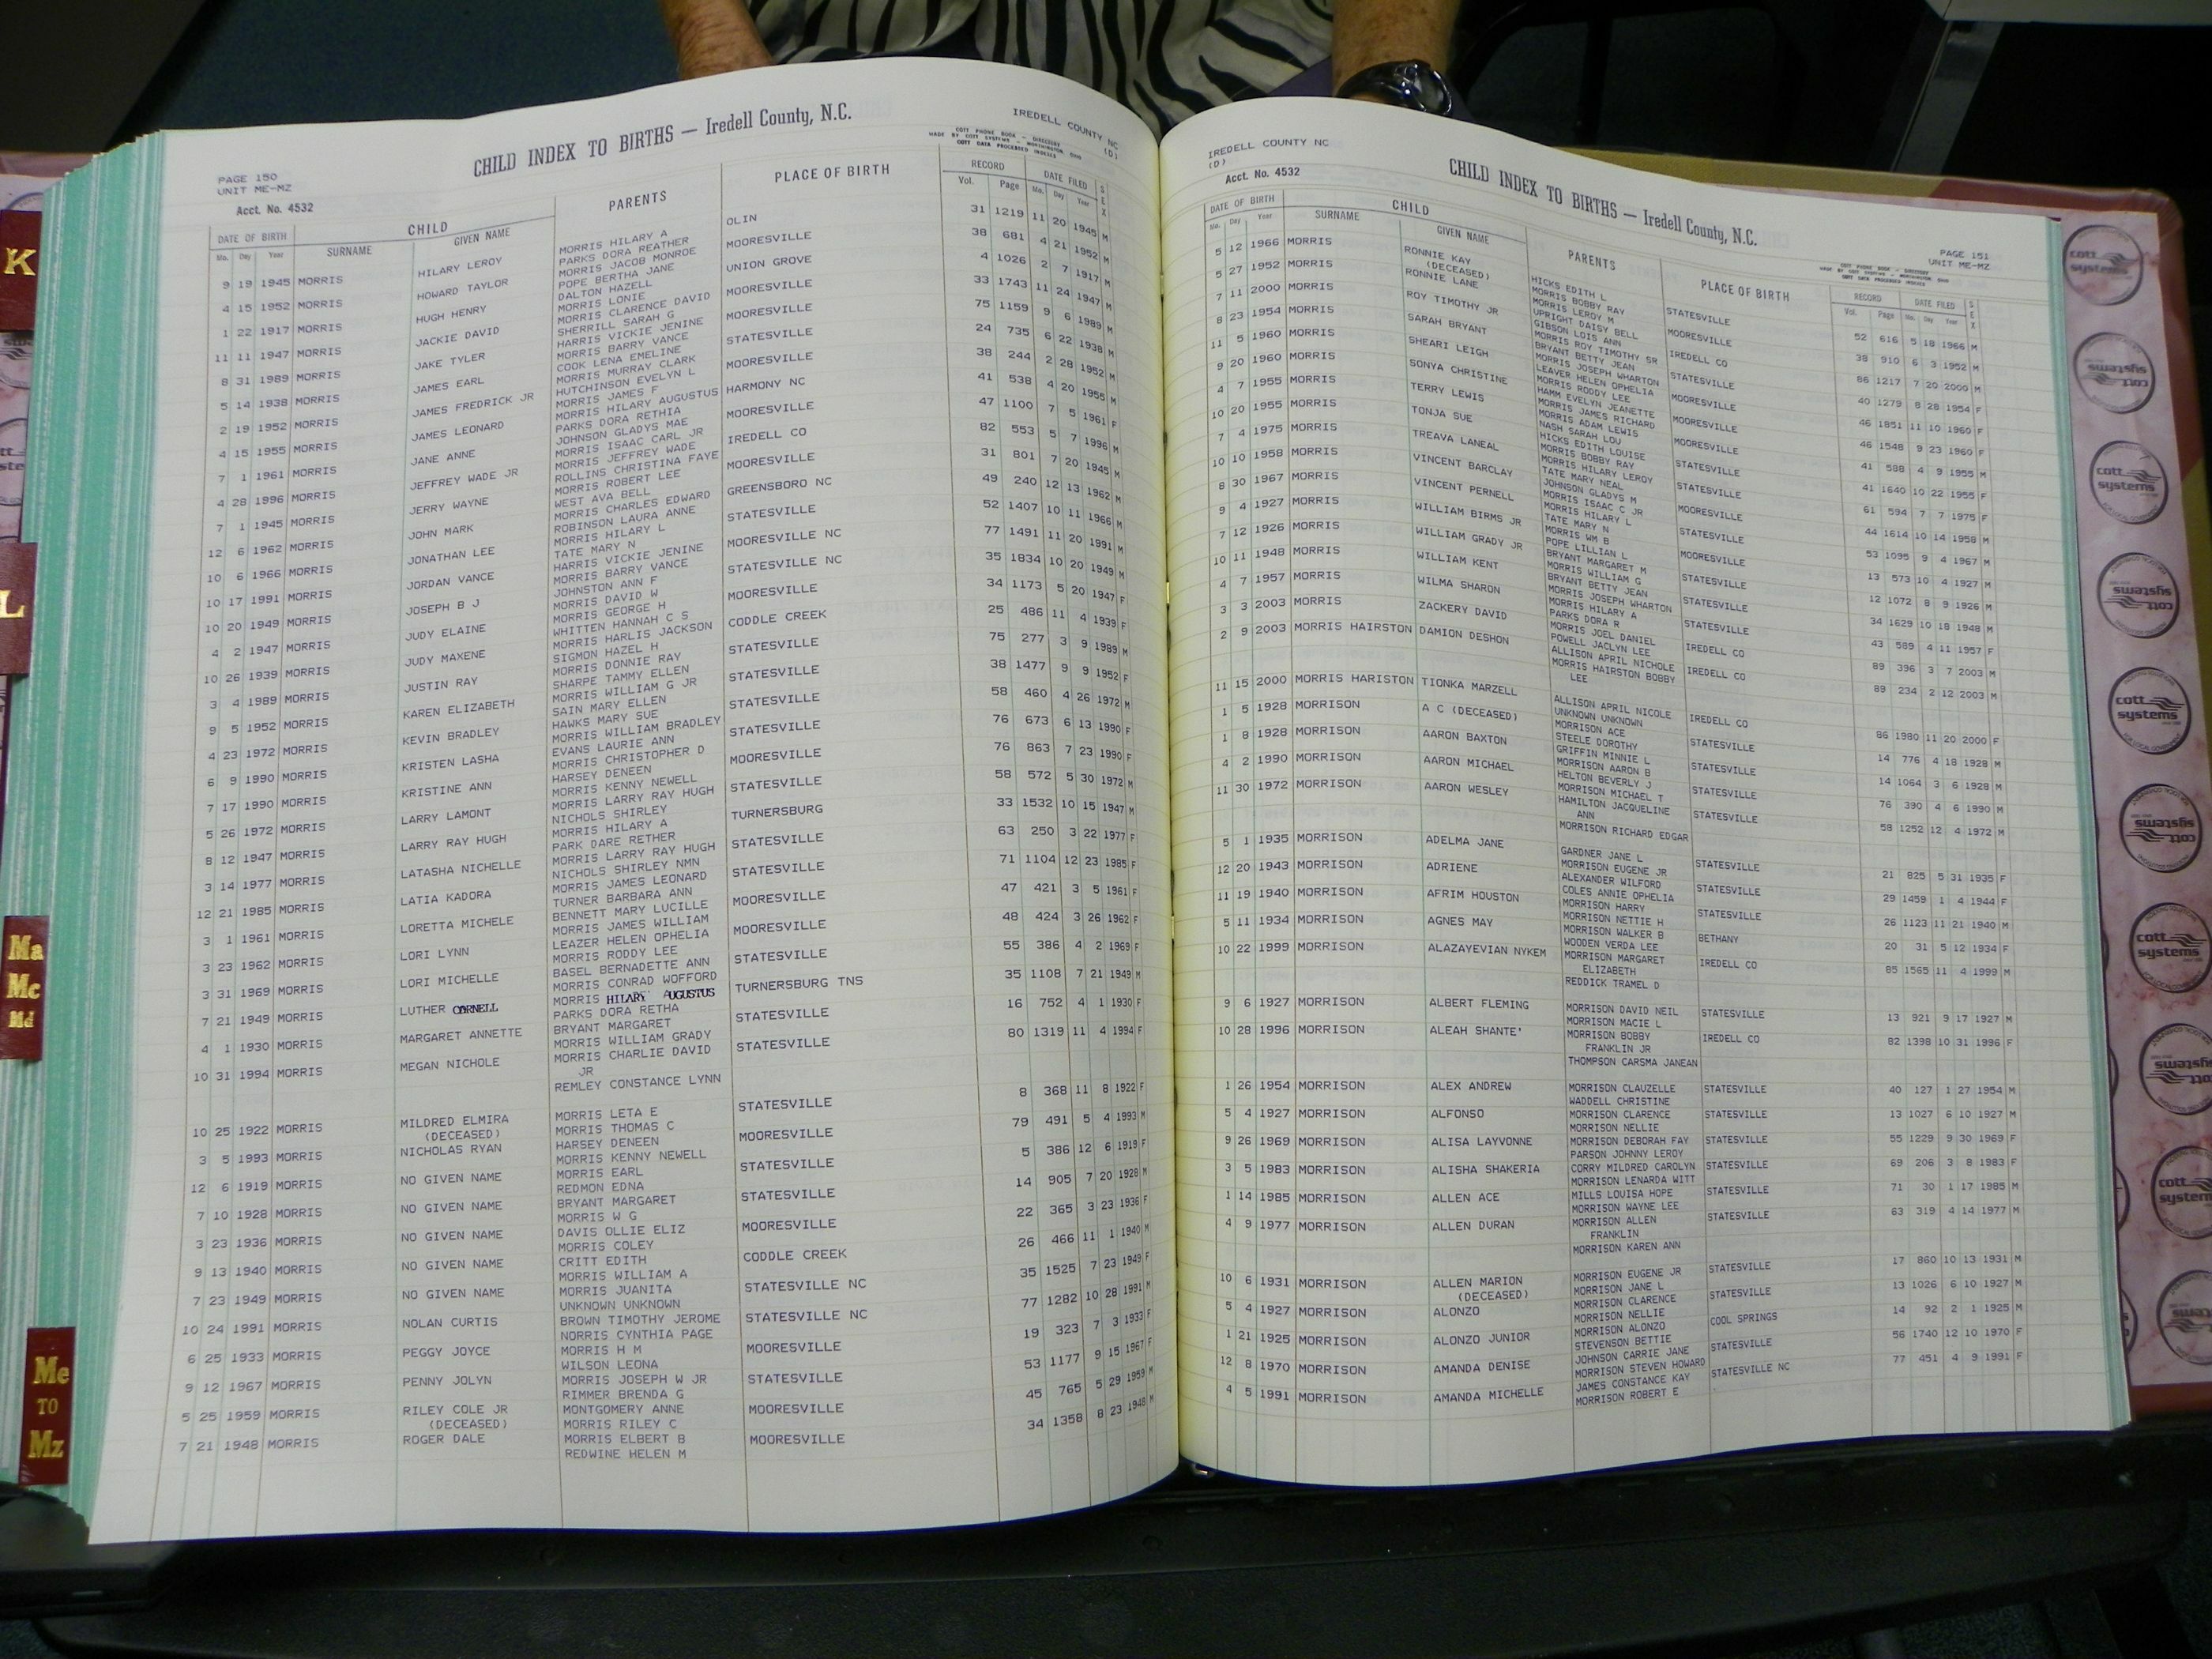 K
L
Ma
Mc
Md
Me
TO
Mz
CHILD INDEX TO BIRTHS — Iredell County, N.C.
IREDELL COUNTY NC
(D)
COTT PHONE BOOK - DIRECTORY
MADE BY COTT SYSTEMS - WORTHINGTON OHIO
COTT DATA PROCESSED INDEXES
PAGE 150
UNIT ME-MZ
Acct. No. 4532
DATE OF BIRTH CHILD PARENTS PLACE OF BIRTH RECORD DATE FILED SEX
Mo. Day Year SURNAME GIVEN NAME Vol. Page Mo. Day Year
9 19 1945 MORRIS HILARY LEROY MORRIS HILARY A OLIN 31 1219 11 20 1945 M
PARKS DORA REATHER
4 15 1952 MORRIS HOWARD TAYLOR MORRIS JACOB MONROE MOORESVILLE 38 681 4 21 1952 M
POPE BERTHA JANE
1 22 1917 MORRIS HUGH HENRY DALTON HAZELL UNION GROVE 4 1026 2 7 1917 M
MORRIS LONIE
11 11 1947 MORRIS JACKIE DAVID MORRIS CLARENCE DAVID MOORESVILLE 33 1743 11 24 1947 M
SHERRILL SARAH G
8 31 1989 MORRIS JAKE TYLER HARRIS VICKIE JENINE MOORESVILLE 75 1159 9 6 1989 M
MORRIS BARRY VANCE
5 14 1938 MORRIS JAMES EARL COOK LENA EMELINE STATESVILLE 24 735 6 22 1938 M
MORRIS MURRAY CLARK
2 19 1952 MORRIS JAMES FREDRICK JR HUTCHINSON EVELYN L MOORESVILLE 38 244 2 28 1952 M
MORRIS JAMES F
4 15 1955 MORRIS JAMES LEONARD MORRIS HILARY AUGUSTUS HARMONY NC 41 538 4 20 1955 M
PARKS DORA RETHIA
7 1 1961 MORRIS JANE ANNE JOHNSON GLADYS MAE MOORESVILLE 47 1100 7 5 1961 F
MORRIS ISAAC CARL JR
4 28 1996 MORRIS JEFFREY WADE JR MORRIS JEFFREY WADE IREDELL CO 82 553 5 7 1996 M
ROLLINS CHRISTINA FAYE
7 1 1945 MORRIS JERRY WAYNE MORRIS ROBERT LEE MOORESVILLE 31 801 7 20 1945 M
WEST AVA BELL
12 6 1962 MORRIS JOHN MARK MORRIS CHARLES EDWARD GREENSBORO NC 49 240 12 13 1962 M
ROBINSON LAURA ANNE
10 6 1966 MORRIS JONATHAN LEE MORRIS HILARY L STATESVILLE 52 1407 10 11 1966 M
TATE MARY N
10 17 1991 MORRIS JORDAN VANCE HARRIS VICKIE JENINE MOORESVILLE NC 77 1491 11 20 1991 M
MORRIS BARRY VANCE
10 20 1949 MORRIS JOSEPH B J JOHNSTON ANN F STATESVILLE NC 35 1834 10 20 1949 M
MORRIS DAVID W
4 2 1947 MORRIS JUDY ELAINE MORRIS GEORGE H MOORESVILLE 34 1173 5 20 1947 F
WHITTEN HANNAH C S
10 26 1939 MORRIS JUDY MAXENE MORRIS HARLIS JACKSON CODDLE CREEK 25 486 11 4 1939 F
SIGMON HAZEL H
3 4 1989 MORRIS JUSTIN RAY MORRIS DONNIE RAY STATESVILLE 75 277 3 9 1989 M
SHARPE TAMMY ELLEN
9 5 1952 MORRIS KAREN ELIZABETH MORRIS WILLIAM G JR STATESVILLE 38 1477 9 9 1952 F
SAIN MARY ELLEN
4 23 1972 MORRIS KEVIN BRADLEY HAWKS MARY SUE STATESVILLE 58 460 4 26 1972 M
MORRIS WILLIAM BRADLEY
6 9 1990 MORRIS KRISTEN LASHA EVANS LAURIE ANN STATESVILLE 76 673 6 13 1990 F
MORRIS CHRISTOPHER D
7 17 1990 MORRIS KRISTINE ANN HARSEY DENEEN MOORESVILLE 76 863 7 23 1990 F
MORRIS KENNY NEWELL
5 26 1972 MORRIS LARRY LAMONT MORRIS LARRY RAY HUGH STATESVILLE 58 572 5 30 1972 M
NICHOLS SHIRLEY
8 12 1947 MORRIS LARRY RAY HUGH MORRIS HILARY A TURNERSBURG 33 1532 10 15 1947 M
PARK DARE RETHER
3 14 1977 MORRIS LATASHA NICHELLE MORRIS LARRY RAY HUGH STATESVILLE 63 250 3 22 1977 F
NICHOLS SHIRLEY NMN
12 21 1985 MORRIS LATIA KADORA MORRIS JAMES LEONARD STATESVILLE 71 1104 12 23 1985 F
TURNER BARBARA ANN
3 1 1961 MORRIS LORETTA MICHELE BENNETT MARY LUCILLE MOORESVILLE 47 421 3 5 1961 F
MORRIS JAMES WILLIAM
3 23 1962 MORRIS LORI LYNN LEAZER HELEN OPHELIA MOORESVILLE 48 424 3 26 1962 F
MORRIS RODDY LEE
3 31 1969 MORRIS LORI MICHELLE BASEL BERNADETTE ANN STATESVILLE 55 386 4 2 1969 F
MORRIS CONRAD WOFFORD
7 21 1949 MORRIS LUTHER CORNELL MORRIS HILARY AUGUSTUS TURNERSBURG TNS 35 1108 7 21 1949 M
PARKS DORA RETHA
4 1 1930 MORRIS MARGARET ANNETTE BRYANT MARGARET STATESVILLE 16 752 4 1 1930 F
MORRIS WILLIAM GRADY
10 31 1994 MORRIS MEGAN NICHOLE MORRIS CHARLIE DAVID STATESVILLE 80 1319 11 4 1994 F
JR
REMLEY CONSTANCE LYNN
10 25 1922 MORRIS MILDRED ELMIRA MORRIS LETA E STATESVILLE 8 368 11 8 1922 F
(DECEASED) MORRIS THOMAS C
3 5 1993 MORRIS NICHOLAS RYAN HARSEY DENEEN MOORESVILLE 79 491 5 4 1993 M
MORRIS KENNY NEWELL
12 6 1919 MORRIS NO GIVEN NAME MORRIS EARL STATESVILLE 5 386 12 6 1919 F
REDMON EDNA
7 10 1928 MORRIS NO GIVEN NAME BRYANT MARGARET STATESVILLE 14 905 7 20 1928 M
MORRIS W G
3 23 1936 MORRIS NO GIVEN NAME DAVIS OLLIE ELIZ MOORESVILLE 22 365 3 23 1936 F
MORRIS COLEY
9 13 1940 MORRIS NO GIVEN NAME CRITT EDITH CODDLE CREEK 26 466 11 1 1940 M
MORRIS WILLIAM A
7 23 1949 MORRIS NO GIVEN NAME MORRIS JUANITA STATESVILLE NC 35 1525 7 23 1949 F
UNKNOWN UNKNOWN
10 24 1991 MORRIS NOLAN CURTIS BROWN TIMOTHY JEROME STATESVILLE NC 77 1282 10 28 1991 M
NORRIS CYNTHIA PAGE
6 25 1933 MORRIS PEGGY JOYCE MORRIS H M MOORESVILLE 19 323 7 3 1933 F
WILSON LEONA
9 12 1967 MORRIS PENNY JOLYN MORRIS JOSEPH W JR STATESVILLE 53 1177 9 15 1967 F
RIMMER BRENDA G
5 25 1959 MORRIS RILEY COLE JR MONTGOMERY ANNE MOORESVILLE 45 765 5 29 1959 M
(DECEASED) MORRIS RILEY C
7 21 1948 MORRIS ROGER DALE MORRIS ELBERT B MOORESVILLE 34 1358 8 23 1948 M
REDWINE HELEN M
IREDELL COUNTY NC
(D)
Acct. No. 4532
CHILD INDEX TO BIRTHS — Iredell County, N.C.
PAGE 151
UNIT ME-MZ
COTT PHONE BOOK - DIRECTORY
MADE BY COTT SYSTEMS - WORTHINGTON OHIO
COTT DATA PROCESSED INDEXES
DATE OF BIRTH CHILD PARENTS PLACE OF BIRTH RECORD DATE FILED SEX
Mo. Day Year SURNAME GIVEN NAME Vol. Page Mo. Day Year
5 12 1966 MORRIS RONNIE KAY HICKS EDITH L STATESVILLE 52 616 5 18 1966 M
(DECEASED) MORRIS BOBBY RAY
5 27 1952 MORRIS RONNIE LANE MORRIS LEROY M MOORESVILLE 38 910 6 3 1952 M
UPRIGHT DAISY BELL
7 11 2000 MORRIS ROY TIMOTHY JR GIBSON LOIS ANN IREDELL CO 86 1217 7 20 2000 M
MORRIS ROY TIMOTHY SR
8 23 1954 MORRIS SARAH BRYANT BRYANT BETTY JEAN STATESVILLE 40 1279 8 28 1954 F
MORRIS JOSEPH WHARTON
11 5 1960 MORRIS SHEARI LEIGH LEAVER HELEN OPHELIA MOORESVILLE 46 1851 11 10 1960 F
MORRIS RODDY LEE
9 20 1960 MORRIS SONYA CHRISTINE HAMM EVELYN JEANETTE MOORESVILLE 46 1548 9 23 1960 F
MORRIS JAMES RICHARD
4 7 1955 MORRIS TERRY LEWIS MORRIS ADAM LEWIS STATESVILLE 41 588 4 9 1955 M
NASH SARAH LOU
10 20 1955 MORRIS TONJA SUE HICKS EDITH LOUISE STATESVILLE 41 1640 10 22 1955 F
MORRIS BOBBY RAY
7 4 1975 MORRIS TREAVA LANEAL MORRIS HILARY LEROY MOORESVILLE 61 594 7 7 1975 F
TATE MARY NEAL
10 10 1958 MORRIS VINCENT BARCLAY JOHNSON GLADYS M STATESVILLE 44 1614 10 14 1958 M
MORRIS ISAAC C JR
8 30 1967 MORRIS VINCENT PERNELL MORRIS HILARY L MOORESVILLE 53 1095 9 4 1967 M
TATE MARY N
9 4 1927 MORRIS WILLIAM BIRMS JR MORRIS WM B STATESVILLE 13 573 10 4 1927 M
POPE LILLIAN L
7 12 1926 MORRIS WILLIAM GRADY JR BRYANT MARGARET M STATESVILLE 12 1072 8 9 1926 M
MORRIS WILLIAM G
10 11 1948 MORRIS WILLIAM KENT BRYANT BETTY JEAN STATESVILLE 34 1629 10 18 1948 M
MORRIS JOSEPH WHARTON
4 7 1957 MORRIS WILMA SHARON MORRIS HILARY A IREDELL CO 43 589 4 11 1957 F
PARKS DORA R
3 3 2003 MORRIS ZACKERY DAVID MORRIS JOEL DANIEL IREDELL CO 89 396 3 7 2003 M
POWELL JACLYN LEE
2 9 2003 MORRIS HAIRSTON DAMION DESHON ALLISON APRIL NICHOLE 89 234 2 12 2003 M
MORRIS HAIRSTON BOBBY
LEE
11 15 2000 MORRIS HARISTON TIONKA MARZELL ALLISON APRIL NICOLE IREDELL CO 86 1980 11 20 2000 F
UNKNOWN UNKNOWN
1 5 1928 MORRISON A C (DECEASED) MORRISON ACE STATESVILLE 14 776 4 18 1928 M
STEELE DOROTHY
1 8 1928 MORRISON AARON BAXTON GRIFFIN MINNIE L STATESVILLE 14 1064 3 6 1928 M
MORRISON AARON B
4 2 1990 MORRISON AARON MICHAEL HELTON BEVERLY J STATESVILLE 76 390 4 6 1990 M
MORRISON MICHAEL T
11 30 1972 MORRISON AARON WESLEY HAMILTON JACQUELINE STATESVILLE 58 1252 12 4 1972 M
ANN
MORRISON RICHARD EDGAR
5 1 1935 MORRISON ADELMA JANE GARDNER JANE L STATESVILLE 21 825 5 31 1935 F
MORRISON EUGENE JR
12 20 1943 MORRISON ADRIENE ALEXANDER WILFORD STATESVILLE 29 1459 1 4 1944 F
COLES ANNIE OPHELIA
11 19 1940 MORRISON AFRIM HOUSTON MORRISON HARRY STATESVILLE 26 1123 11 21 1940 M
MORRISON NETTIE H
5 11 1934 MORRISON AGNES MAY MORRISON WALKER B BETHANY 20 31 5 12 1934 F
WOODEN VERDA LEE
10 22 1999 MORRISON ALAZAYEVIAN NYKEM MORRISON MARGARET IREDELL CO 85 1565 11 4 1999 M
ELIZABETH
REDDICK TRAMEL D
9 6 1927 MORRISON ALBERT FLEMING MORRISON DAVID NEIL STATESVILLE 13 921 9 17 1927 M
MORRISON MACIE L
10 28 1996 MORRISON ALEAH SHANTE' MORRISON BOBBY IREDELL CO 82 1398 10 31 1996 F
FRANKLIN JR
THOMPSON CARSMA JANEAN
1 26 1954 MORRISON ALEX ANDREW MORRISON CLAUZELLE STATESVILLE 40 127 1 27 1954 M
WADDELL CHRISTINE
5 4 1927 MORRISON ALFONSO MORRISON CLARENCE STATESVILLE 13 1027 6 10 1927 M
MORRISON NELLIE
9 26 1969 MORRISON ALISA LAYVONNE MORRISON DEBORAH FAY STATESVILLE 55 1229 9 30 1969 F
PARSON JOHNNY LEROY
3 5 1983 MORRISON ALISHA SHAKERIA CORRY MILDRED CAROLYN STATESVILLE 69 206 3 8 1983 F
MORRISON LENARDA WITT
1 14 1985 MORRISON ALLEN ACE MILLS LOUISA HOPE STATESVILLE 71 30 1 17 1985 M
MORRISON WAYNE LEE
4 9 1977 MORRISON ALLEN DURAN MORRISON ALLEN STATESVILLE 63 319 4 14 1977 M
FRANKLIN
MORRISON KAREN ANN
10 6 1931 MORRISON ALLEN MARION MORRISON EUGENE JR STATESVILLE 17 860 10 13 1931 M
(DECEASED) MORRISON JANE L
5 4 1927 MORRISON ALONZO MORRISON CLARENCE STATESVILLE 13 1026 6 10 1927 M
MORRISON NELLIE
1 21 1925 MORRISON ALONZO JUNIOR MORRISON ALONZO COOL SPRINGS 14 92 2 1 1925 M
STEVENSON BETTIE
12 8 1970 MORRISON AMANDA DENISE JOHNSON CARRIE JANE STATESVILLE 56 1740 12 10 1970 F
MORRISON STEVEN HOWARD
4 5 1991 MORRISON AMANDA MICHELLE JAMES CONSTANCE KAY STATESVILLE NC 77 451 4 9 1991 F
MORRISON ROBERT E
cott
systems
cott
systems
cott
systems
cott
systems
cott
systems